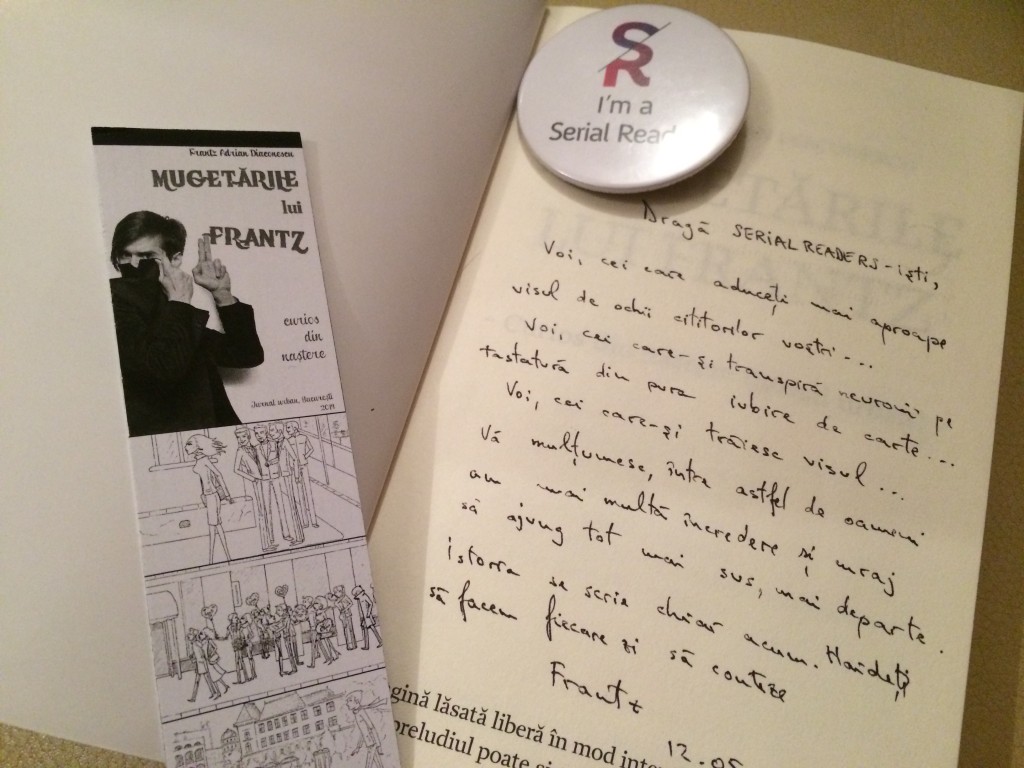 Frantz Adrian Diaconescu
MUGETĂRILE
lui
FRANTZ
curios
din
naștere
Jurnal urban, București
2019
SR
I'm a
Serial Read
ETĂRILE
LUI FRANTZ
Dragă SERIALREADERS-iști,
Voi, cei care aduceți mai aproape
visul de ochii cititorilor voștri...
Voi, cei care-și transpiră neuronii pe
tastatură din pura iubire de carte...
Voi, cei care-și trăiesc visul...
Vă mulțumesc, întra astfel de oameni
am mai multă încredere și curaj
să ajung tot mai sus, mai departe.
Istoria se scrie chiar acum. Haideți
să facem fiecare zi să conteze
Frantz
12.05
gină lăsată liberă în mod inte
preludiul poate și